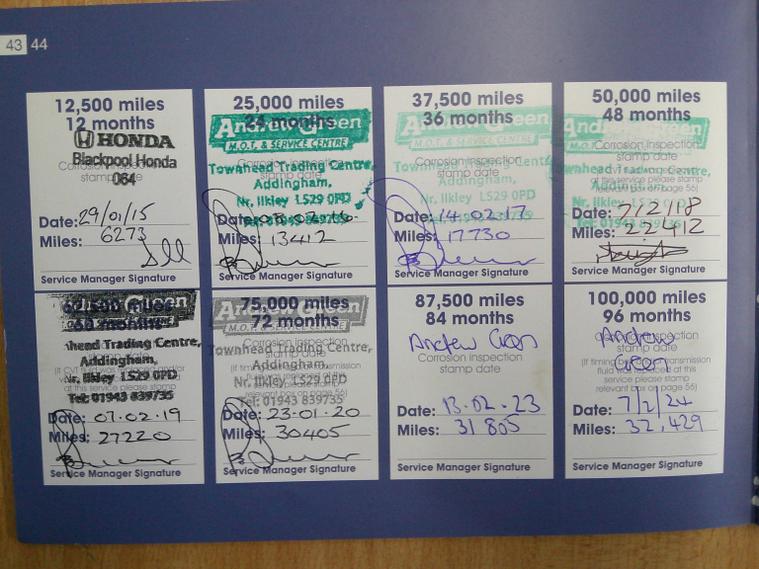 43 44
12,500 miles
12 months
HONDA
Blackpool Honda
064
Corrosion inspection
stamp date
Date: 29/01/15
Miles: 6273
Service Manager Signature
25,000 miles
24 months
Andrew Green
M.O.T. & SERVICE CENTRE
Corrosion inspection
stamp date
Townhead Trading Centre,
Addingham,
Nr. Ilkley LS29 0PD
Tel: 01943 839735
Date: 08.02.16
Miles: 13412
Service Manager Signature
37,500 miles
36 months
Andrew Green
M.O.T. & SERVICE CENTRE
Corrosion inspection
stamp date
Townhead Trading Centre,
Addingham,
Nr. Ilkley LS29 0PD
Date: 14.02.17
Miles: 17730
Service Manager Signature
50,000 miles
48 months
Andrew Green
Corrosion inspection
stamp date
Townhead Trading Centre,
Addingham,
at this service please stamp
relevant box on page 56)
Nr. Ilkley LS29 0PD
Tel: 01943 839735
Date: 7/2/18
Miles: 22412
Service Manager Signature
62,500 miles
60 months
Andrew Green
Townhead Trading Centre,
Addingham,
at this service please stamp
Nr. Ilkley LS29 0PD
Tel: 01943 839735
Date: 07.02.19
Miles: 27220
Service Manager Signature
75,000 miles
72 months
Andrew Green
M.O.T. & SERVICE CENTRE
Corrosion inspection
stamp date
Townhead Trading Centre,
Addingham,
at this service please stamp
Nr. Ilkley LS29 0PD
relevant box on page 56)
Tel: 01943 839735
Date: 23.01.20
Miles: 30405
Service Manager Signature
87,500 miles
84 months
Andrew Green
Corrosion inspection
stamp date
Date: 13.02.23
Miles: 31805
Service Manager Signature
100,000 miles
96 months
Andrew
Corrosion inspection
stamp date
Green
fluid was replaced at
this service please stamp
relevant box on page 56)
Date: 7/2/24
Miles: 32,429
Service Manager Signature